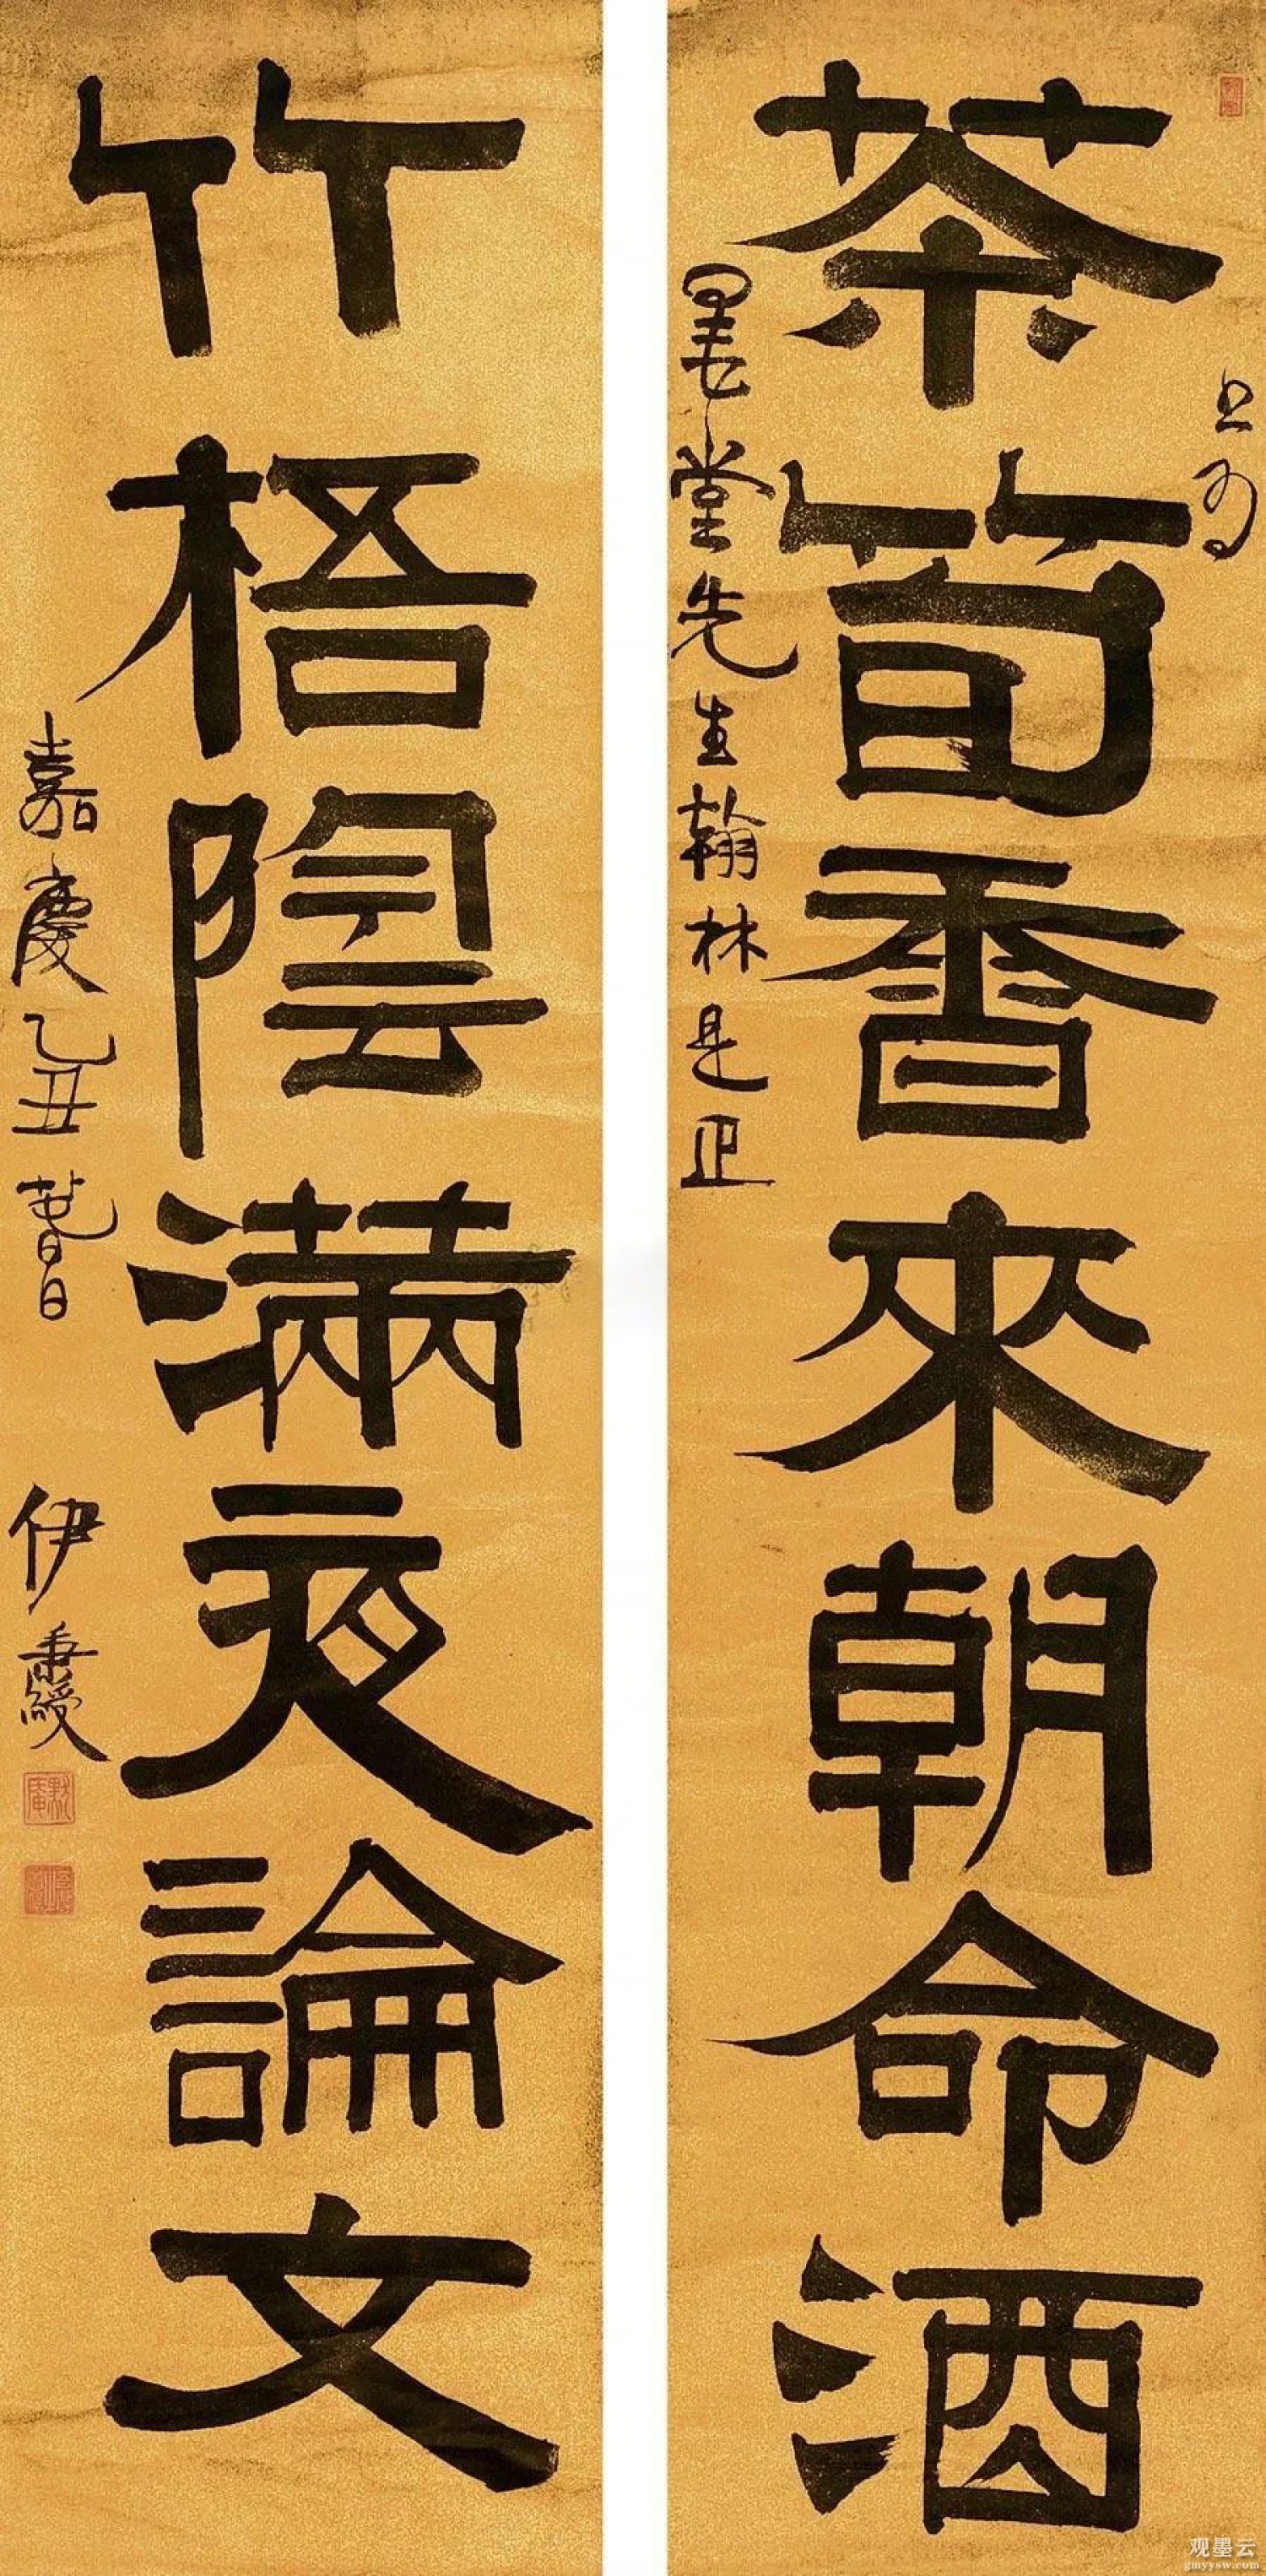 茶筍香來朝命酒
為
堂先生翰林是正
竹梧陰滿夜論文
嘉慶乙丑萅日
伊秉綬
观墨云
gmyysw.com